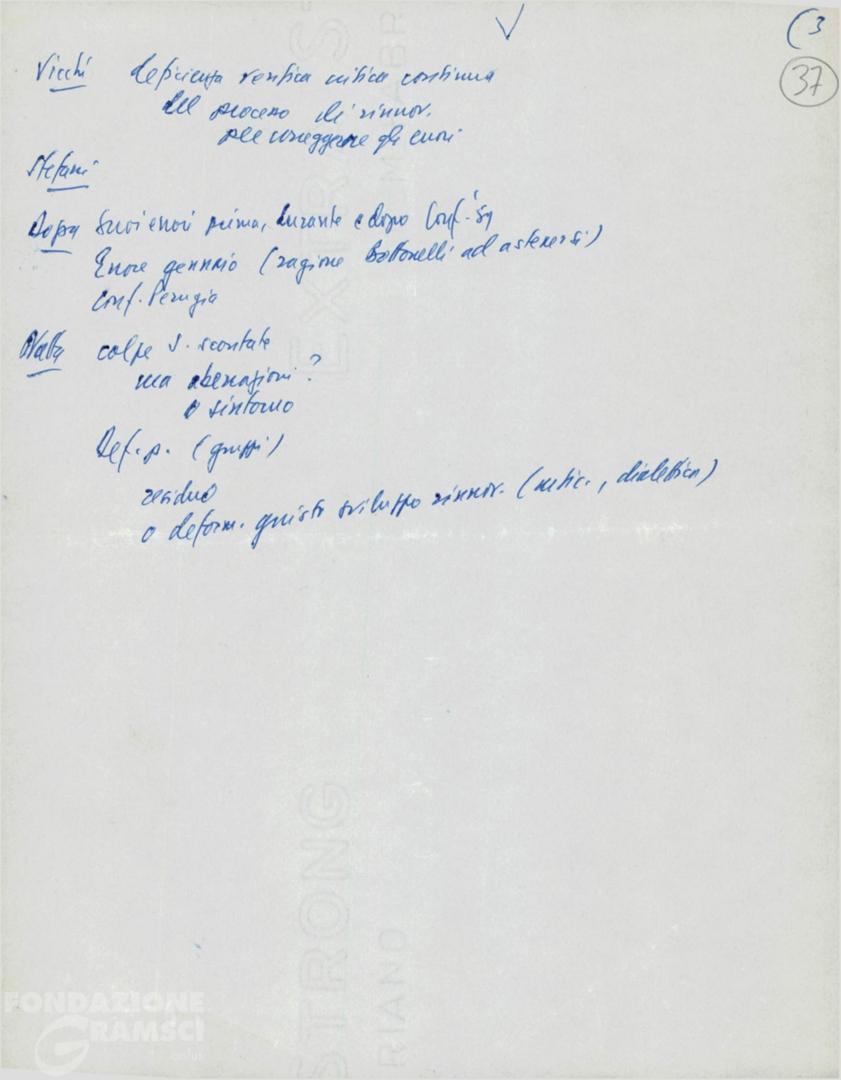 (3
37
Vicchi deficienza verifica critica continua
del processo di rinnov.
per correggere gli errori
Stefani
Dopo Suoi errori prima, durante e dopo Conf. '59
Errore gennaio (ragione Bottonelli ad astenersi)
Conf. Perugia
colpe S. scontate
ma aberrazioni?
o sintomo
Def. p. (gruppi)
residuo
o deform. giusto sviluppo rinnov. (critic., dialettica)
EXTRA STRONG
FABRIANO
FONDAZIONE
GRAMSCI
onlus